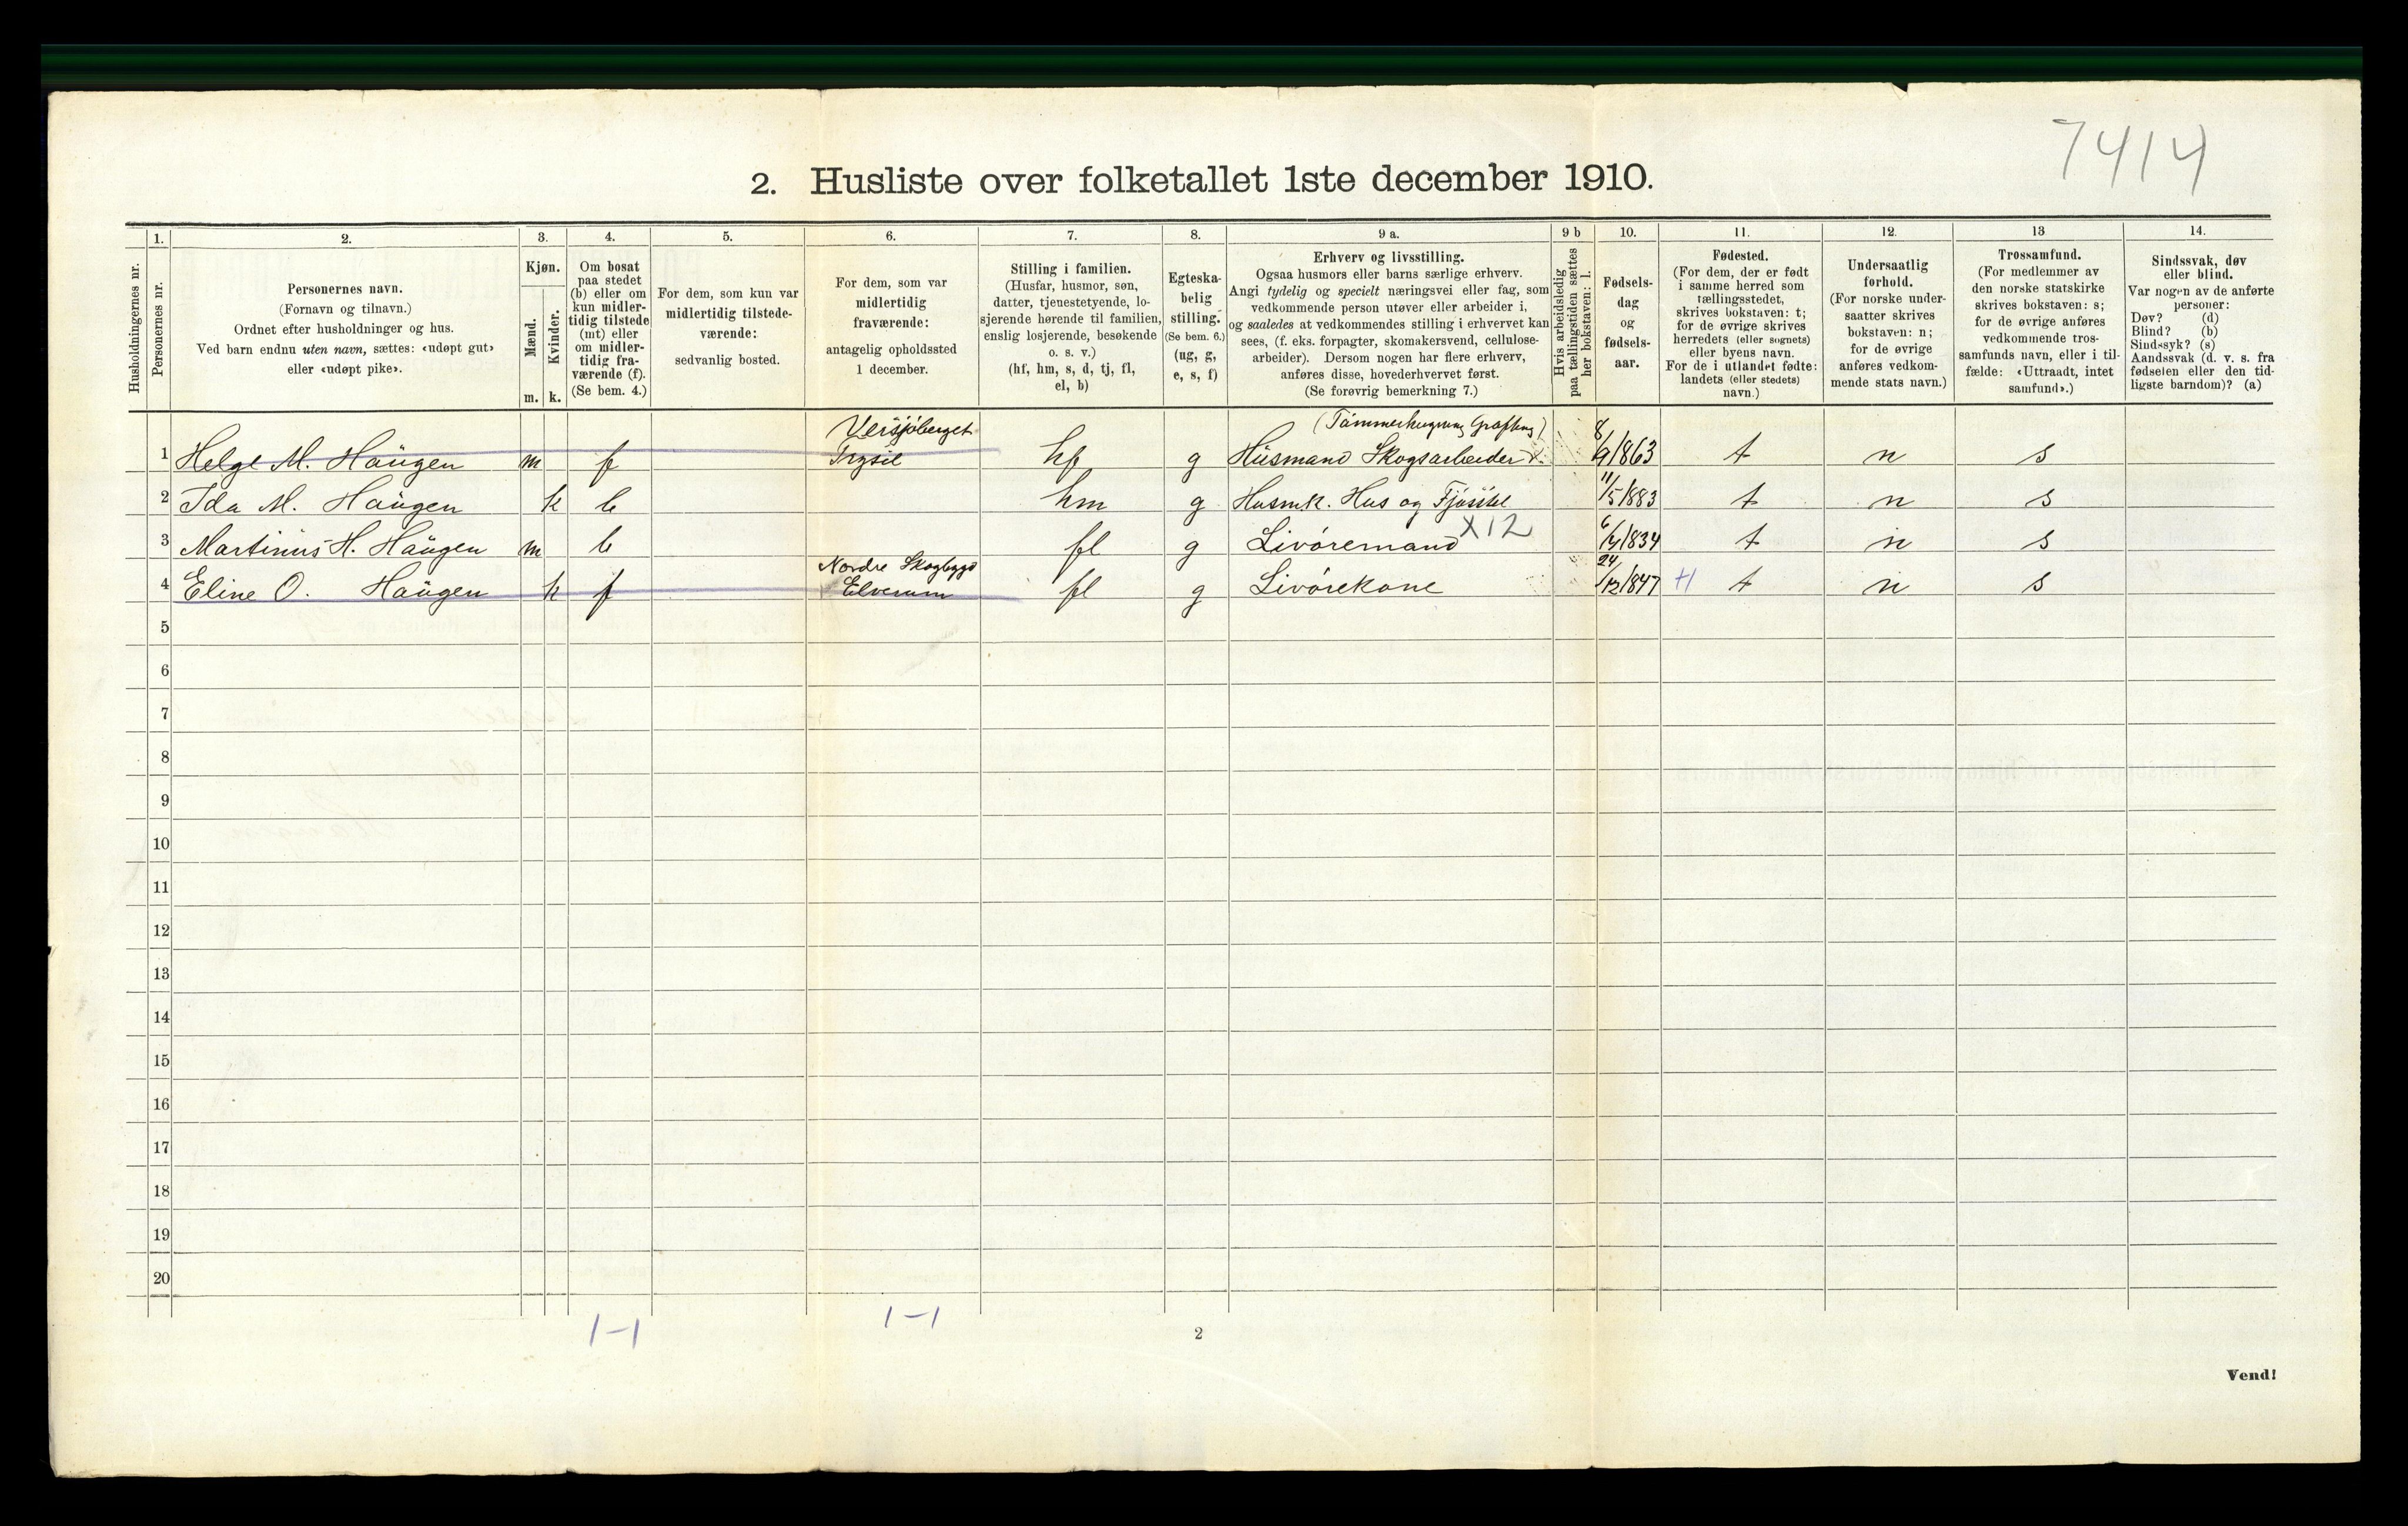 7414
2. Husliste over folketallet 1ste december 1910.
Husholdningernes nr.
1.
Personernes nr.
2.
Personernes navn.
(Fornavn og tilnavn.)
Ordnet efter husholdninger og hus.
Ved barn endnu uten navn, sættes: «udøpt gut»
eller «udøpt pike».
3.
Kjøn.
Mænd.
Kvinder.
m. k.
4.
Om bosat
paa stedet
(b) eller om
kun midler-
tidig tilstede
(mt) eller
om midler-
tidig fra-
værende (f).
(Se bem. 4.)
5.
For dem, som kun var
midlertidig tilstede-
værende:
sedvanlig bosted.
6.
For dem, som var
midlertidig
fraværende:
antagelig opholdssted
1 december.
7.
Stilling i familien.
(Husfar, husmor, søn,
datter, tjenestetyende, lo-
sjerende hørende til familien,
enslig losjerende, besøkende
o. s. v.)
(hf, hm, s, d, tj, fl,
el, b)
8.
Egteska-
belig
stilling.
(Se bem. 6.)
(ug, g,
e, s, f)
9 a.
Erhverv og livsstilling.
Ogsaa husmors eller barns særlige erhverv.
Angi tydelig og specielt næringsvei eller fag, som
vedkommende person utøver eller arbeider i,
og saaledes at vedkommendes stilling i erhvervet kan
sees, (f. eks. forpagter, skomakersvend, cellulose-
arbeider). Dersom nogen har flere erhverv,
anføres disse, hovederhvervet først.
(Se forøvrig bemerkning 7.)
9 b
Hvis arbeidsledig
paa tællingstiden sættes
her bokstaven: l.
10.
Fødsels-
dag
og
fødsels-
aar.
11.
Fødested.
(For dem, der er født
i samme herred som
tællingsstedet,
skrives bokstaven: t;
for de øvrige skrives
herredets (eller sognets)
eller byens navn.
For de i utlandet fødte:
landets (eller stedets)
navn.)
12.
Undersaatlig
forhold.
(For norske under-
saatter skrives
bokstaven: n;
for de øvrige
anføres vedkom-
mende stats navn.)
13
Trossamfund.
(For medlemmer av
den norske statskirke
skrives bokstaven: s;
for de øvrige anføres
vedkommende tros-
samfunds navn, eller i til-
fælde: «Uttraadt, intet
samfund».)
14.
Sindssvak, døv
eller blind.
Var nogen av de anførte
personer:
Døv? (d)
Blind? (b)
Sindssyk? (s)
Aandssvak (d. v. s. fra
fødselen eller den tid-
ligste barndom)? (a)
1 Helge M. Haugen m f Trysil hf g Husmand Skogsarbeider 8/9 1863 t n s
2 Ida M. Haugen k b hm g Husmk. Hus og Fjøsstel 11/5 1883 t n s
X12
3 Martinus H. Haugen m b fl g Livøremand 6/4 1834 t n s
Nordre Skogbygd
4 Eline O. Haugen k f Elverum fl g Livørekone 24/12 1847 t n s
5
6
7
8
9
10
11
12
13
14
15
16
17
18
19
20
1-1 1-1
2
Vend!